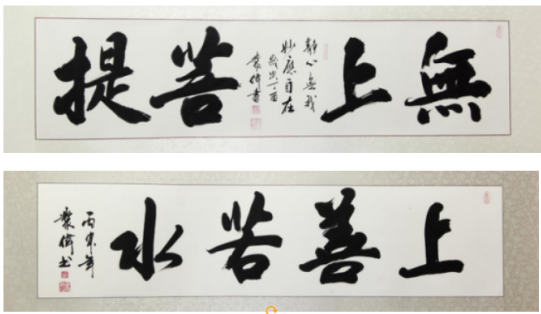 無上菩提
靜心無我
妙應自在
歲次丁酉
偉書
上善若水
丙申年
偉书